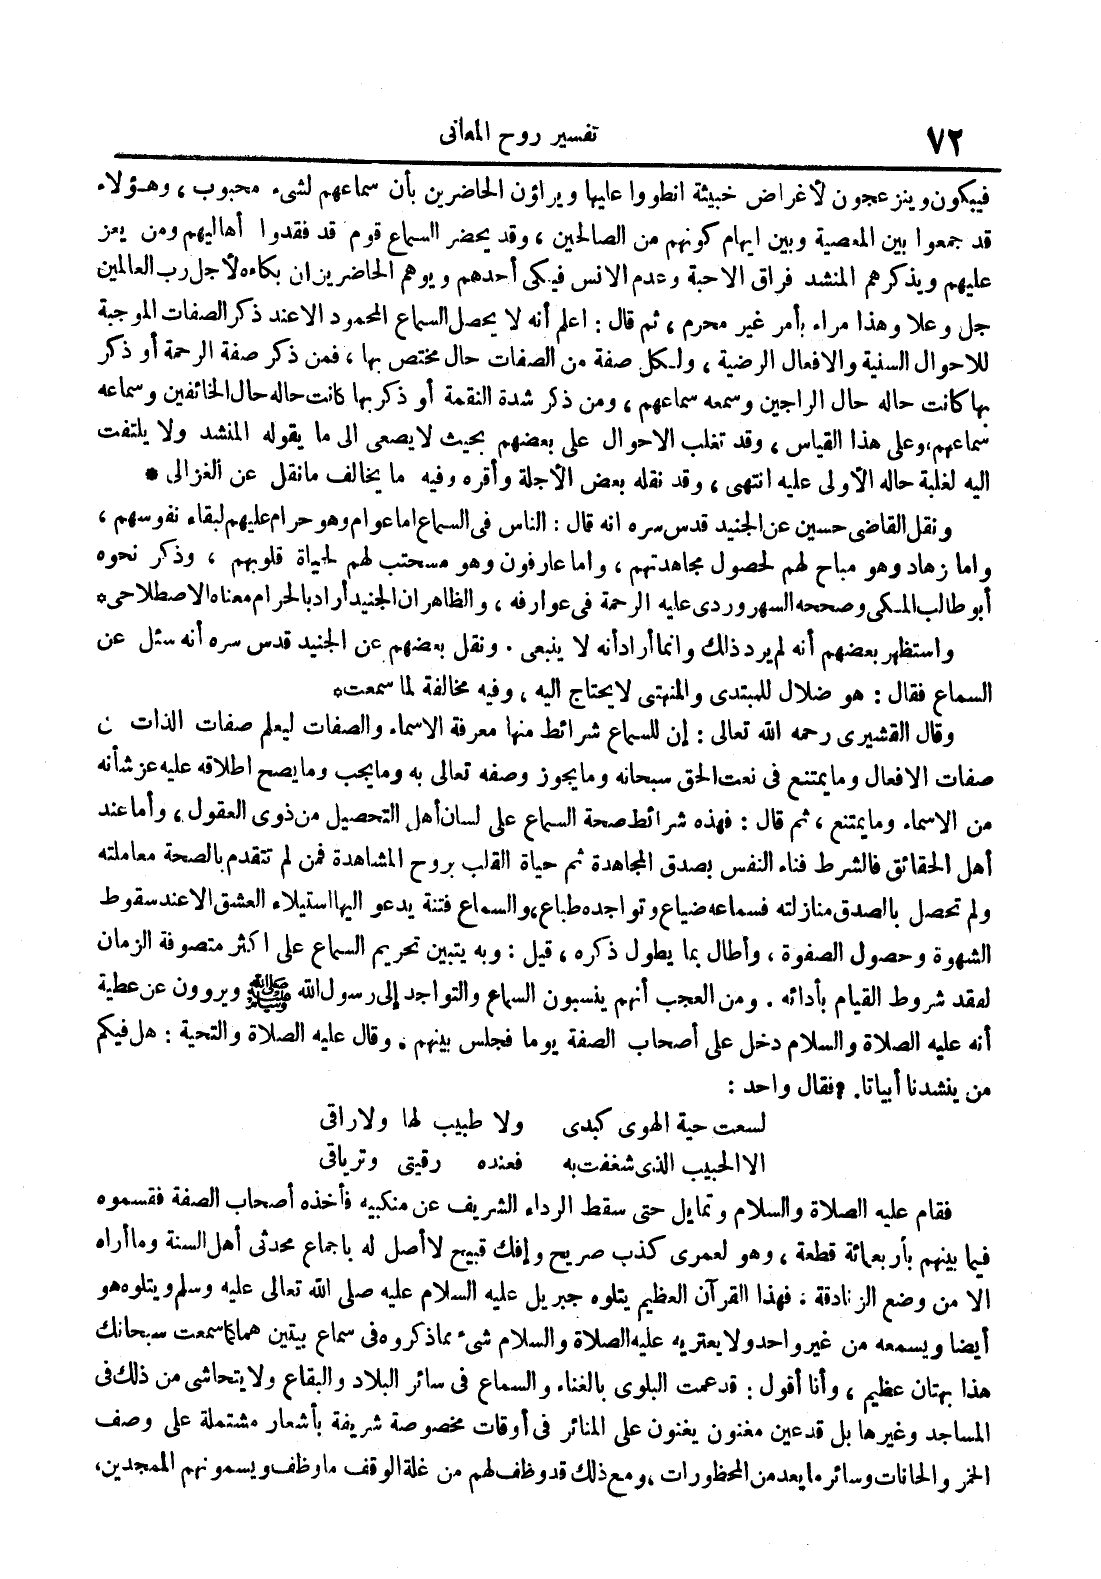 ٧٢
تفسير روح المعانى
فيبكون وينزعجون لأغراض خبيثة انطووا عليها ويراؤن الحاضرين بأن سماعهم لشىء محبوب ، وهؤلاء
قد جمعوا بين المعصية وبين ايهام كونهم من الصالحين ، وقد يحضر السماع قوم قد فقدوا أهاليهم ومن يعز
عليهم ويذكرهم المنشد فراق الاحبة وعدم الانس فيبكى أحدهم ويوهم الحاضرين ان بكاءه لأجل رب العالمين
جل وعلا وهذا مراء بأمر غير محرم ، ثم قال : اعلم أنه لا يحصل السماع المحمود الا عند ذكر الصفات الموجبة
للاحوال السنية والافعال الرضية ، ولكل صفة من الصفات حال مختص بها ، فمن ذكر صفة الرحمة أو ذكر
بها كانت حاله حال الراجين وسمعه سماعهم ، ومن ذكر شدة النقمة أو ذكر بها كانت حاله حال الخائفين وسماعه
سماعهم، وعلى هذا القياس ، وقد تغلب الاحوال على بعضهم بحيث لا يصغى الى ما يقوله المنشد ولا يلتفت
اليه لغلبة حاله الأولى عليه انتهى ، وقد نقله بعض الأجلة وأقره وفيه ما يخالف مانقل عن الغزالى *
ونقل القاضى حسين عن الجنيد قدس سره انه قال : الناس فى السماع اما عوام وهو حرام عليهم لبقاء نفوسهم ،
واما زهاد وهو مباح لهم لحصول مجاهدتهم ، واما عارفون وهو مستحب لهم لحياة قلوبهم ، وذكر نحوه
أبو طالب المكى وصححه السهروردى عليه الرحمة فى عوارفه ، والظاهر ان الجنيد أراد بالحرام معناه الاصطلاحى*
واستظهر بعضهم أنه لم يرد ذلك وانما أراد أنه لا ينبغى . ونقل بعضهم عن الجنيد قدس سره أنه سئل عن
السماع فقال : هو ضلال للمبتدى والمنتهى لا يحتاج اليه ، وفيه مخالفة لما سمعت*
وقال القشيرى رحمه الله تعالى : إن للسماع شرائط منها معرفة الاسماء والصفات ليعلم صفات الذات ن
صفات الافعال وما يمتنع فى نعت الحق سبحانه وما يجوز وصفه تعالى به وما يجب وما يصح اطلاقه عليه عز شأنه
من الاسماء وما يمتنع ، ثم قال : فهذه شرائط صحة السماع على لسان أهل التحصيل من ذوى العقول ، وأما عند
أهل الحقائق فالشرط فناء النفس بصدق المجاهدة ثم حياة القلب بروح المشاهدة فمن لم تتقدم بالصحة معاملته
ولم تحصل بالصدق منازلته فسماعه ضياع وتواجده طباع، والسماع فتنة يدعو اليها استيلاء العشق الا عند سقوط
الشهوة وحصول الصفوة ، وأطال بما يطول ذكره ، قيل : وبه يتبين تحريم السماع على اكثر متصوفة الزمان
لفقد شروط القيام بأدائه . ومن العجب أنهم ينسبون السماع والتواجد إلى رسول الله ﷺ ويروون عن عطية
أنه عليه الصلاة والسلام دخل على أصحاب الصفة يوما فجلس بينهم . وقال عليه الصلاة والتحية : هل فيكم
من ينشدنا أبياتا. ؟ فقال واحد :
لسعت حية الهوى كبدى ولا طبيب لها ولا راقى
الا الحبيب الذى شغفت به فعنده رقيتى وترياقى
فقام عليه الصلاة والسلام وتمايل حتى سقط الرداء الشريف عن منكبيه فأخذه أصحاب الصفة فقسموه
فيما بينهم بأربعمائة قطعة ، وهو لعمرى كذب صريح وإفك قبيح لا أصل له باجماع محدثى أهل السنة وما أراه
الا من وضع الزنادقة . فهذا القرآن العظيم يتلوه جبريل عليه السلام عليه صلى الله تعالى عليه وسلم ويتلوه هو
أيضا ويسمعه من غير واحد ولا يعتريه عليه الصلاة والسلام شىء مما ذكروه فى سماع بيتين هما كما سمعت سبحانك
هذا بهتان عظيم ، وأنا أقول : قد عمت البلوى بالغناء والسماع فى سائر البلاد والبقاع ولا يتحاشى من ذلك فى
المساجد وغيرها بل قد عين مغنون يغنون على المنائر فى أوقات مخصوصة شريفة بأشعار مشتملة على وصف
الخمر والحانات وسائر ما يعد من المحظورات ، ومع ذلك قد وظف لهم من غلة الوقف ما وظف ويسمونهم الممجدين،